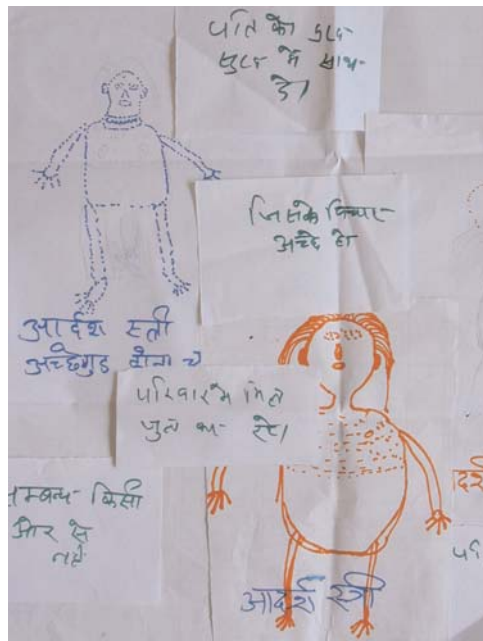 पति का दुख
सुख में साथ
दे।
जिसके विचार
अच्छे हो
आर्दश स्त्री
अच्छेगुड होना चे
परिवार में मिल
जुल कर रहे।
सम्बन्ध किसी
और से
नही
आदर्श स्त्री